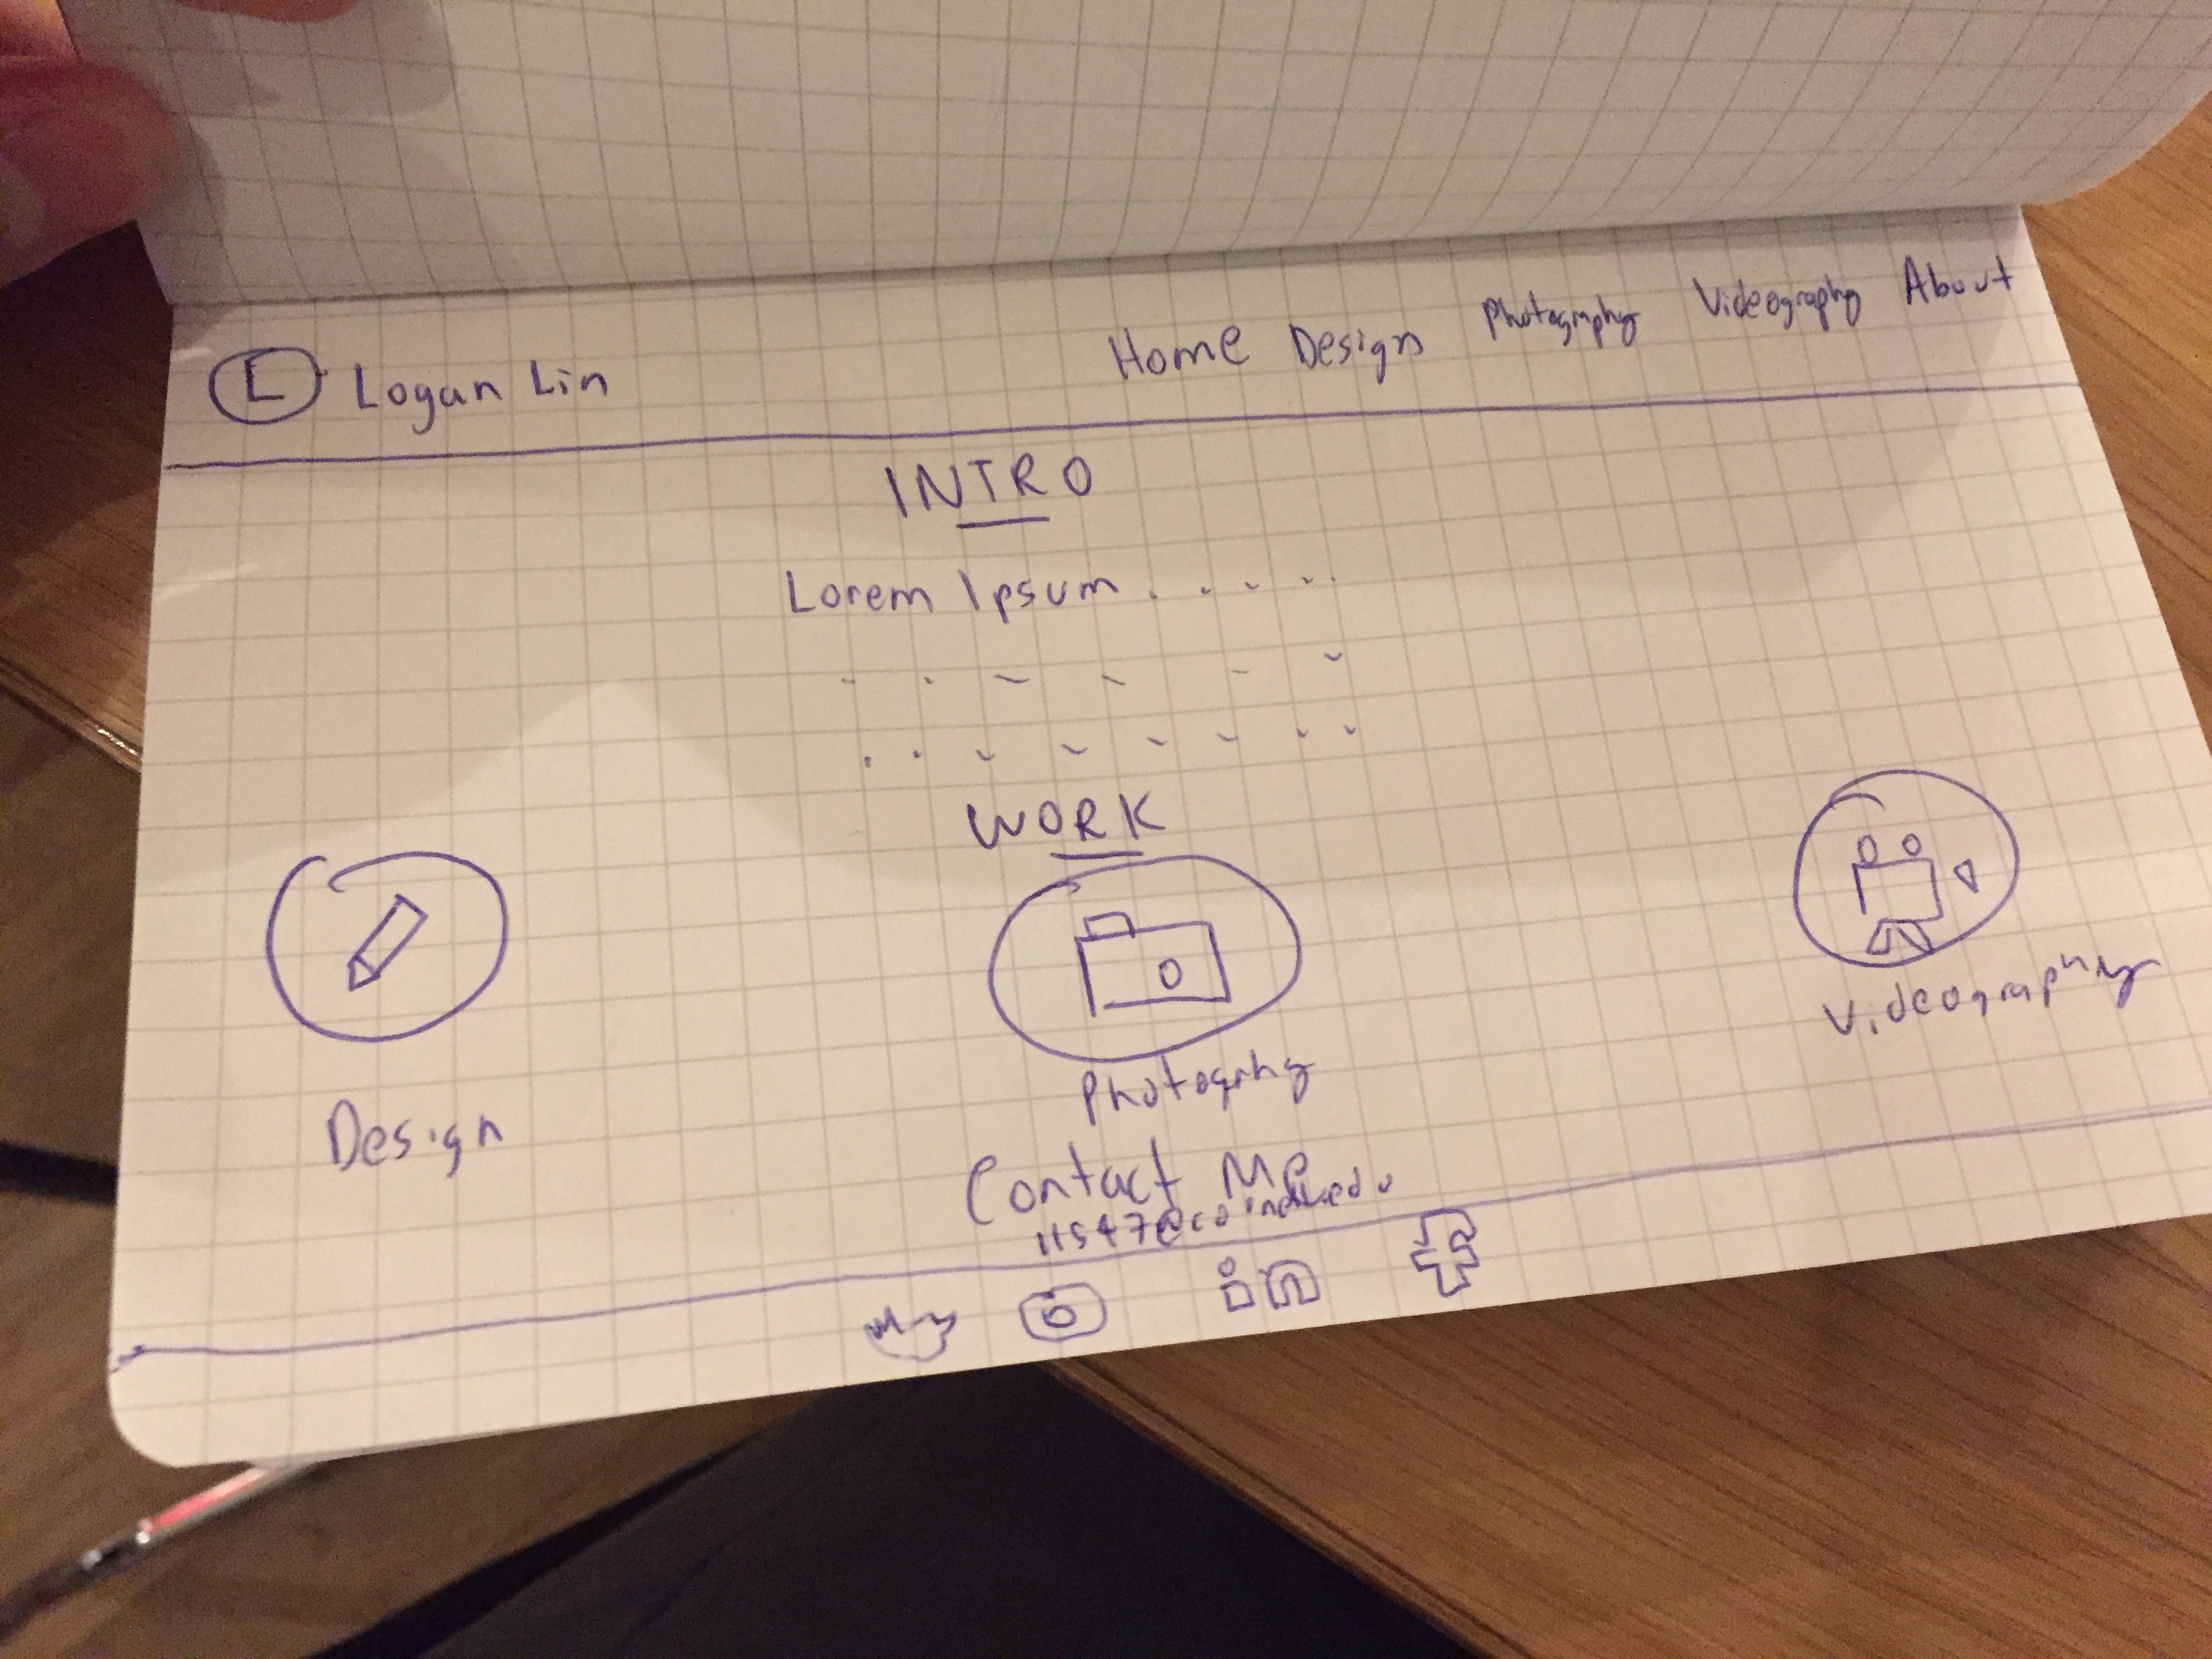 L Logan Lin Home Design Photography Videography About
INTRO
Lorem Ipsum . . . . .
WORK
Design
Photogrhy
Videography
Contact Me
in
f